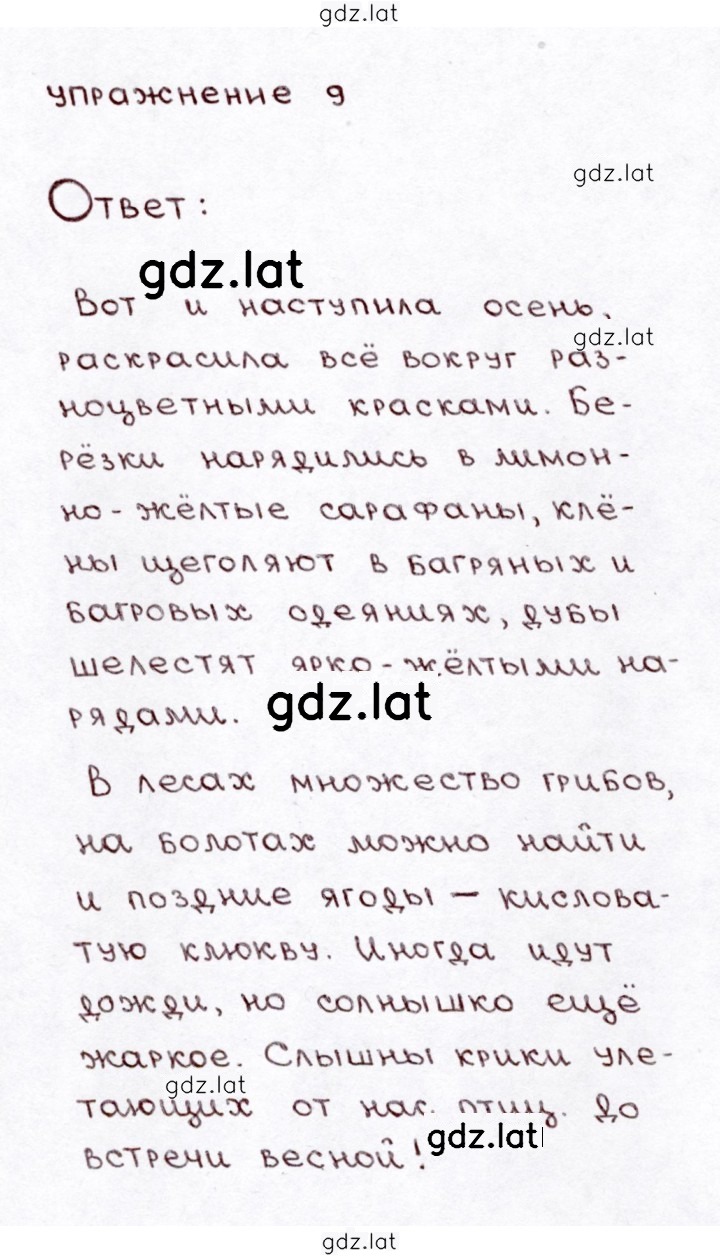 gdz.lat
упражнение 9
gdz.lat
Ответ:
gdz.lat
Вот и наступила осень,
gdz.lat
раскрасила всё вокруг раз-
ноцветными красками. Бе-
рёзки нарядились в лимон-
но-жёлтые сарафаны, клё-
ны щеголяют в багряных и
багровых одеяниях, дубы
шелестят ярко-жёлтыми на-
gdz.lat
рядами.
В лесах множество грибов,
на болотах можно найти
и поздние ягоды — кислова-
тую клюкву. Иногда идут
дожди, но солнышко ещё
жаркое. Слышны крики уле-
gdz.lat
тающих от нас птиц. До
gdz.lat
встречи весной!
gdz.lat